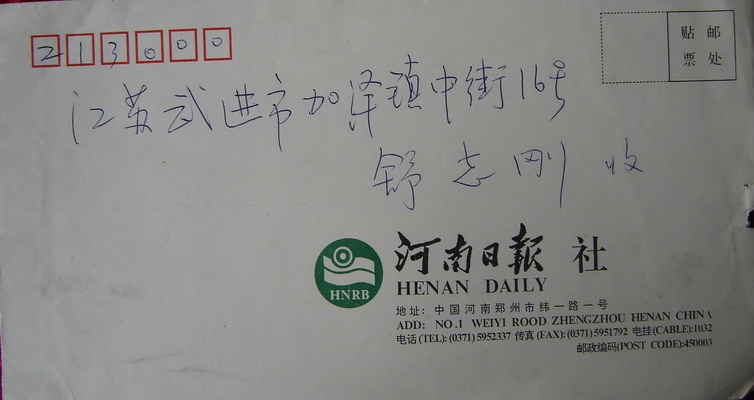 213000
贴邮
票处
江苏武进市加泽镇中街16号
舒志刚 收
河南日報社
HENAN DAILY
HNRB
地址：中国河南郑州市纬一路一号
ADD: NO.1 WEIYI ROOD ZHENGZHOU HENAN CHINA
电话(TEL):(0371)5952337 传真(FAX):(0371)5951792 电挂(CABLE):1032
邮政编码(POST CODE):450003